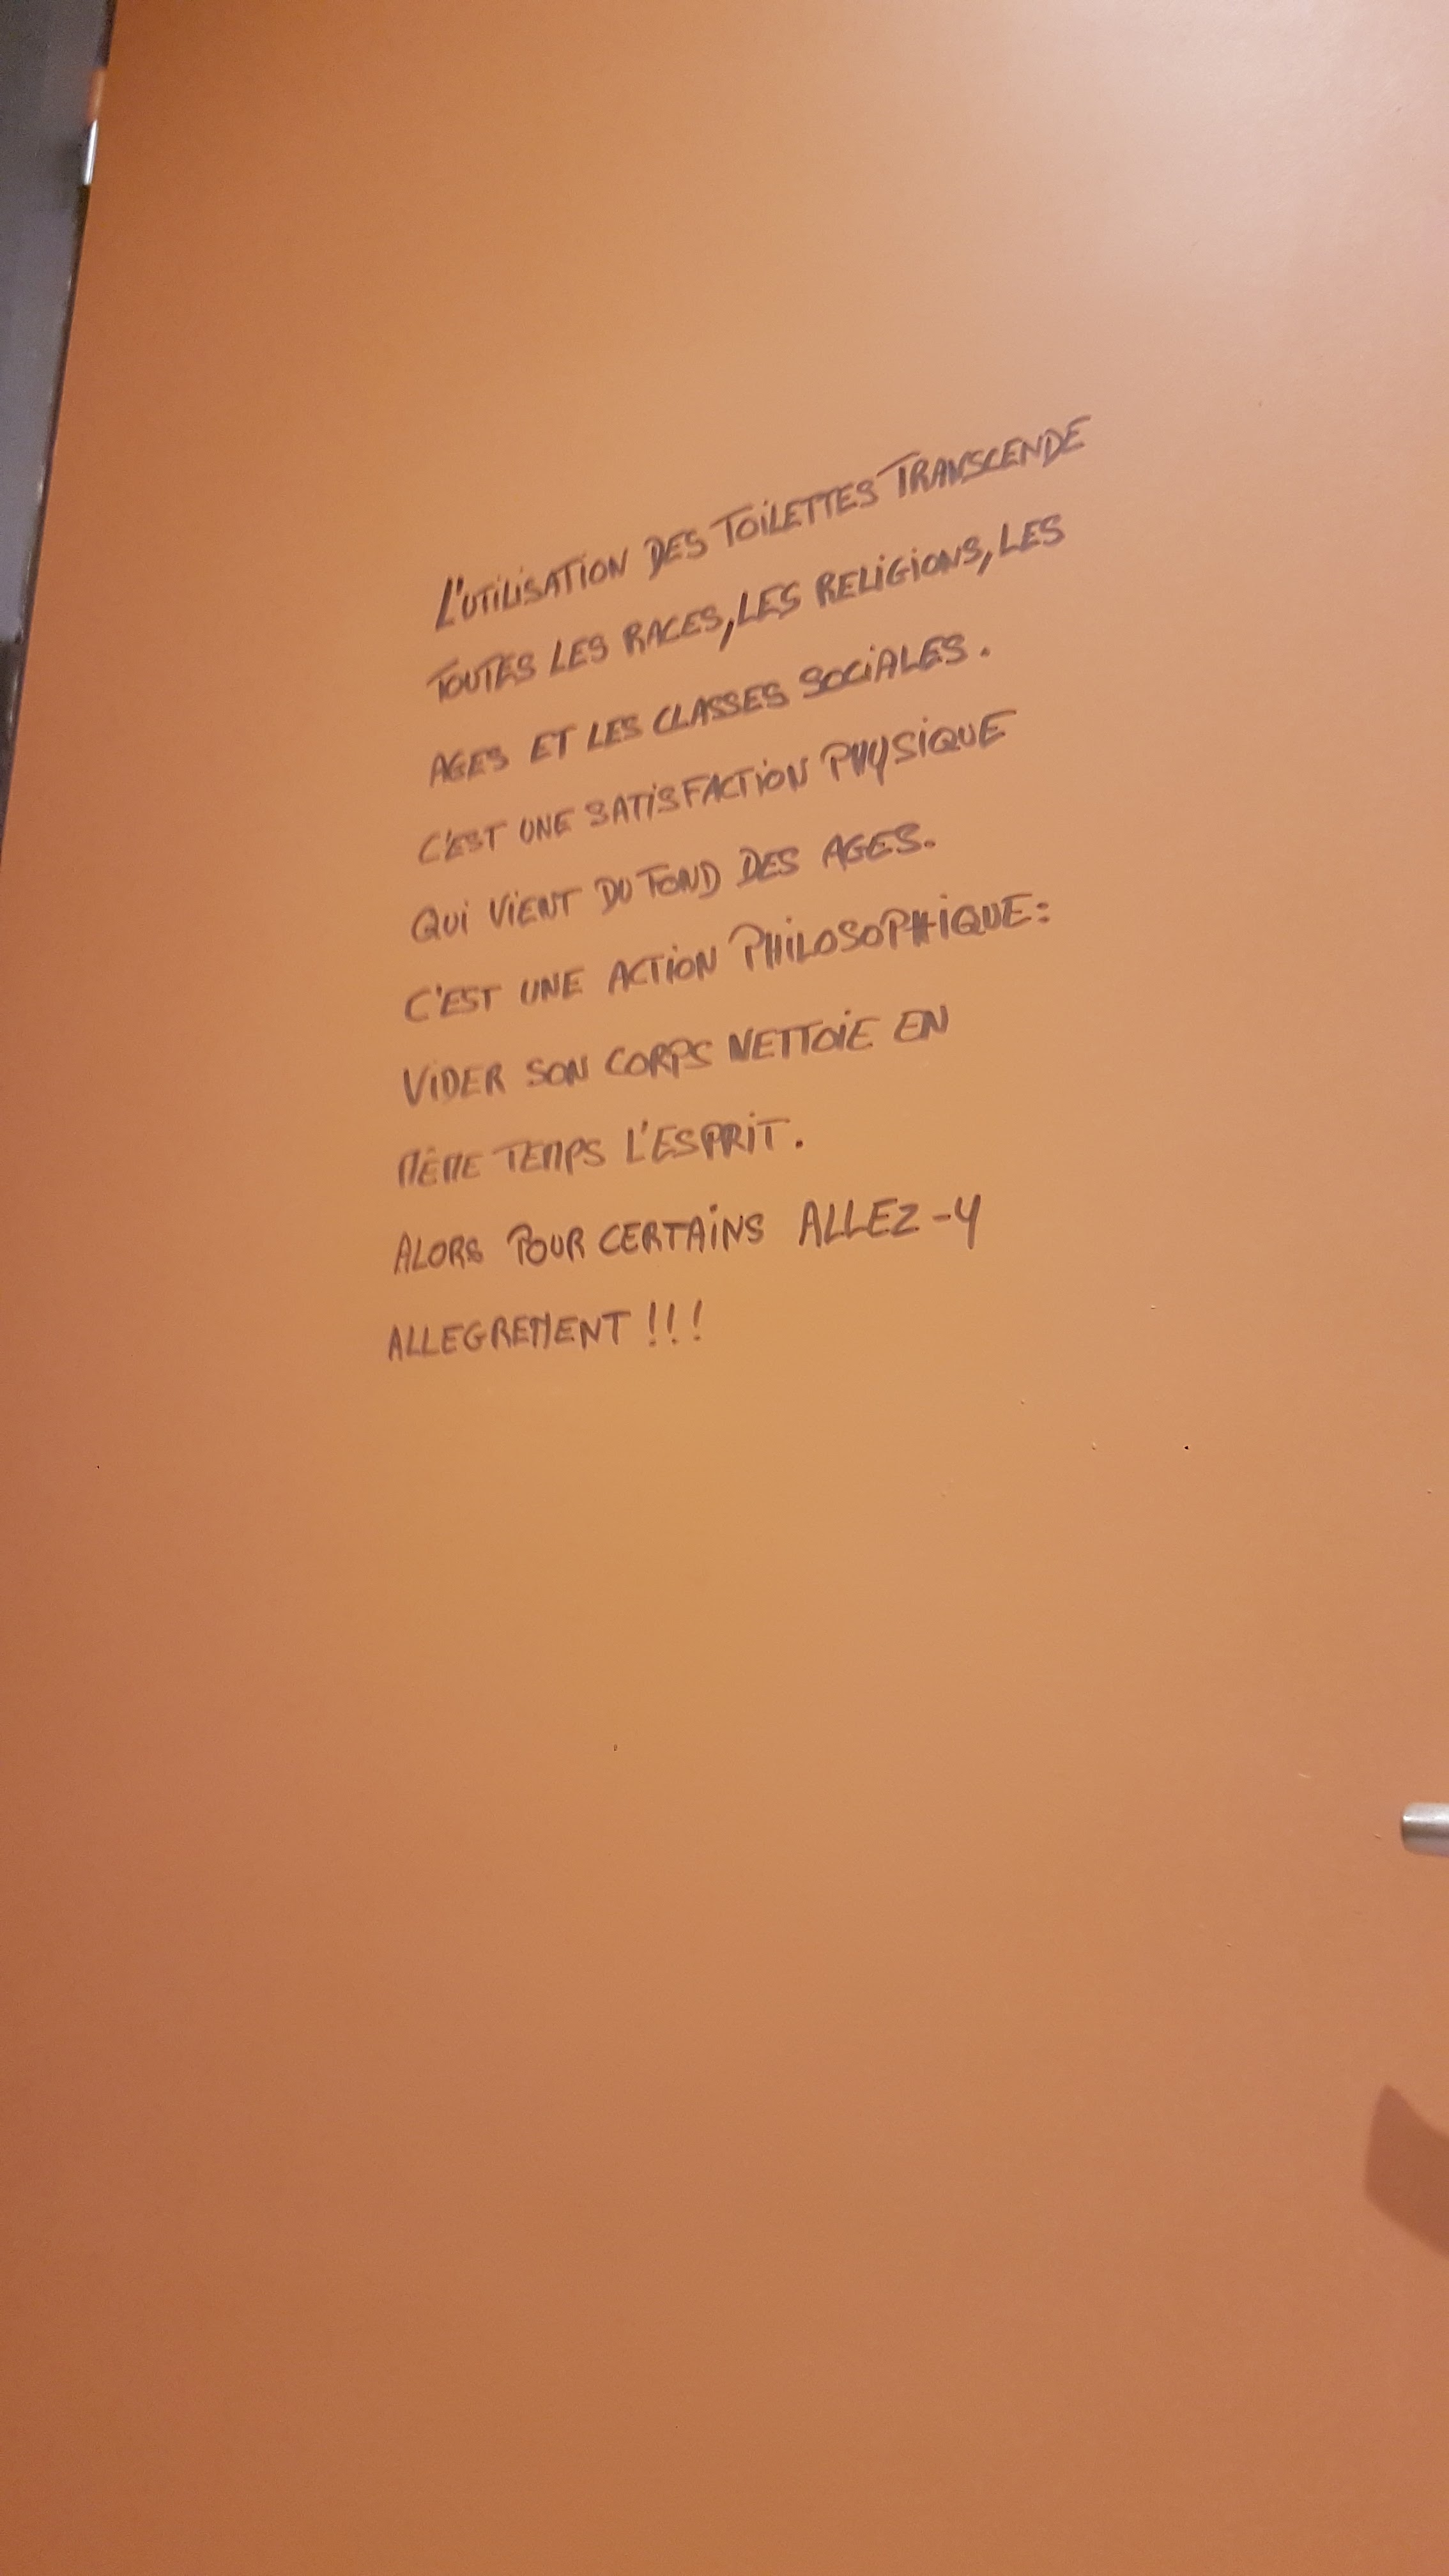 L'UTILISATION DES TOILETTES TRANSCENDE
TOUTES LES RACES, LES RELIGIONS, LES
AGES ET LES CLASSES SOCIALES.
C'EST UNE SATISFACTION PHYSIQUE
QUI VIENT DU FOND DES AGES.
C'EST UNE ACTION PHILOSOPHIQUE:
VIDER SON CORPS NETTOIE EN
MÊME TEMPS L'ESPRIT.
ALORS POUR CERTAINS ALLEZ-Y
ALLEGREMENT!!!